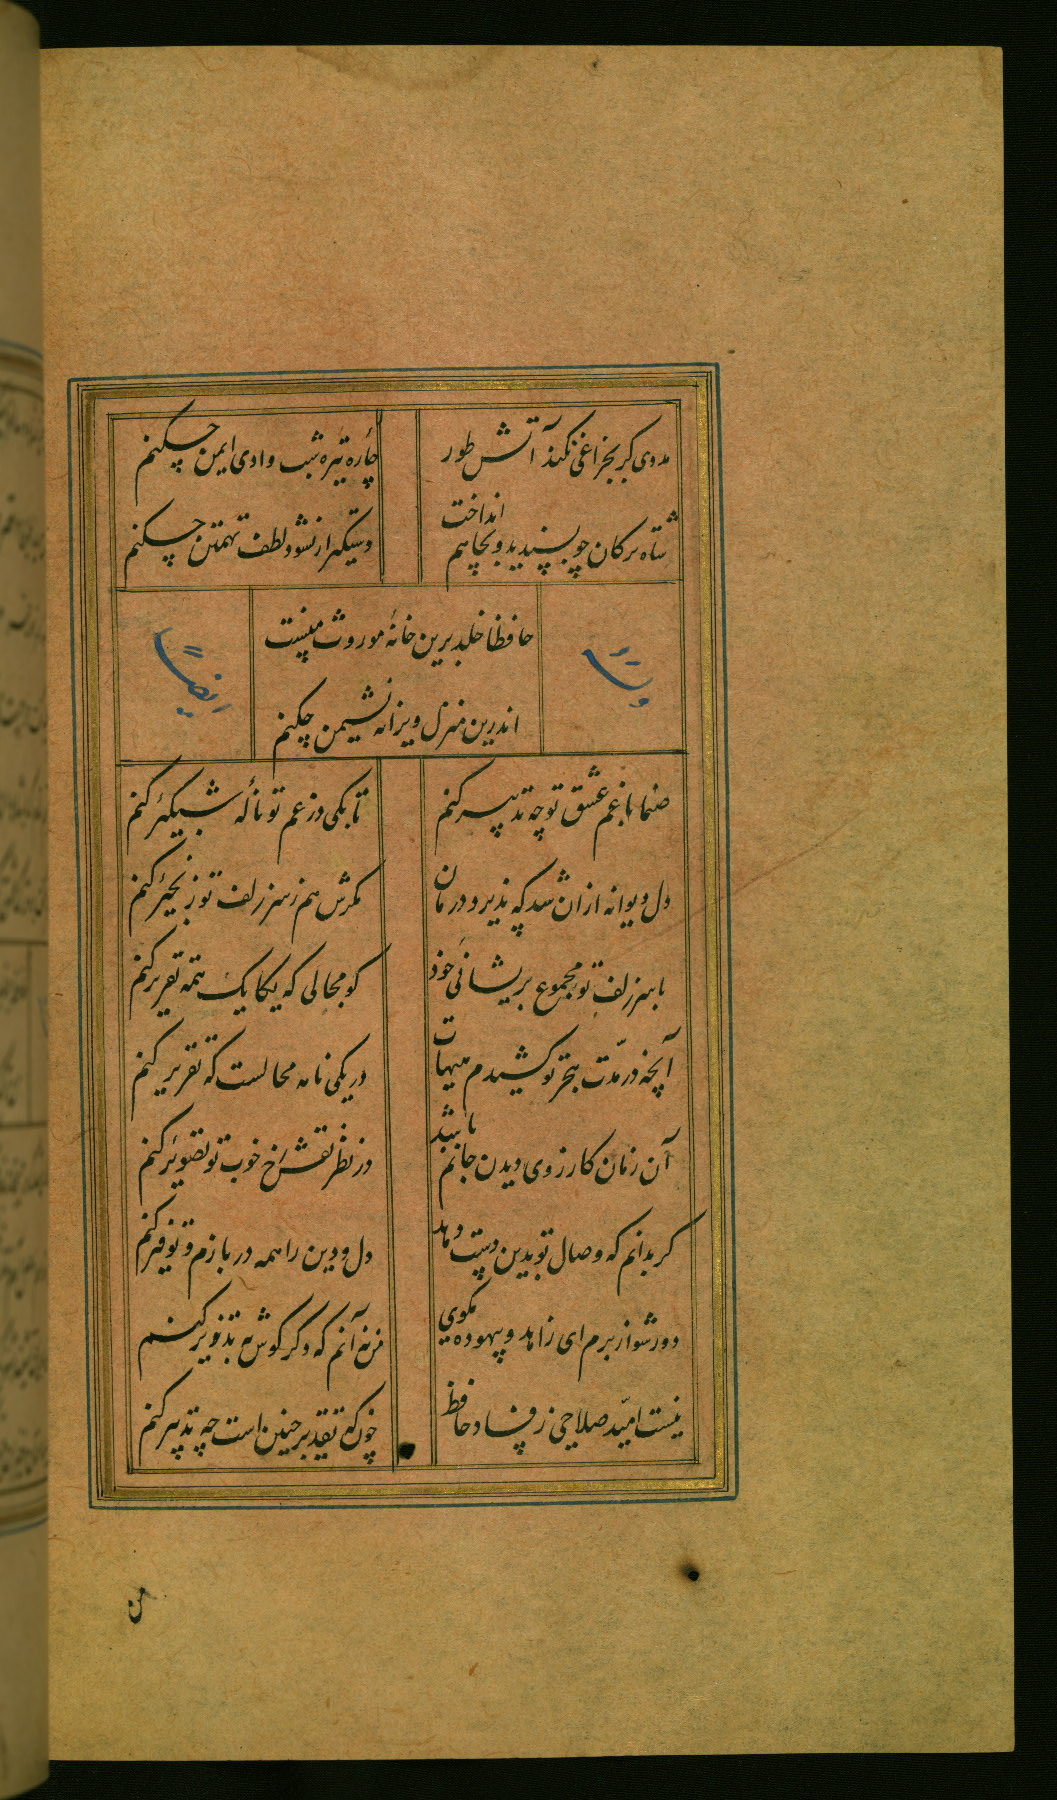 مددی گر بچراغی نکند آتش طور
چاره تیره شب وادی ایمن چکنم
شاه ترکان چو پسندید و بچاهم انداخت
دستگیر ار نشود لطف تهمتن چکنم
حافظا خلد برین خانه موروث منست
اندرین منزل ویرانه نشیمن چکنم
وله
ایضا
صنما با غم عشق تو چه تدبیر کنم
تا بکی در غم تو ناله شبگیر کنم
دل دیوانه ازان شد که پذیرد درمان
مگرش هم ز سر زلف تو زنجیر کنم
با سر زلف تو مجموع پریشانی خود
کو مجالی که یکایک همه تقریر کنم
آنچه در مدّت هجر تو کشیدم هیهات
در یکی نامه محالست که تقریر کنم
آن زمان کارزوی دیدن جانم باشد
در نظر نقش رخ خوب تو تصویر کنم
گر بدانم که وصال تو بدین دست دهد
دل و دین را همه در بازم و توفیر کنم
دور شو از برم ای زاهد و بیهوده مگوی
من نه آنم که دگر گوش به تزویر کنم
نیست امیّد صلاحی ز فساد حافظ
چونکه تقدیر چنین است چه تدبیر کنم
من